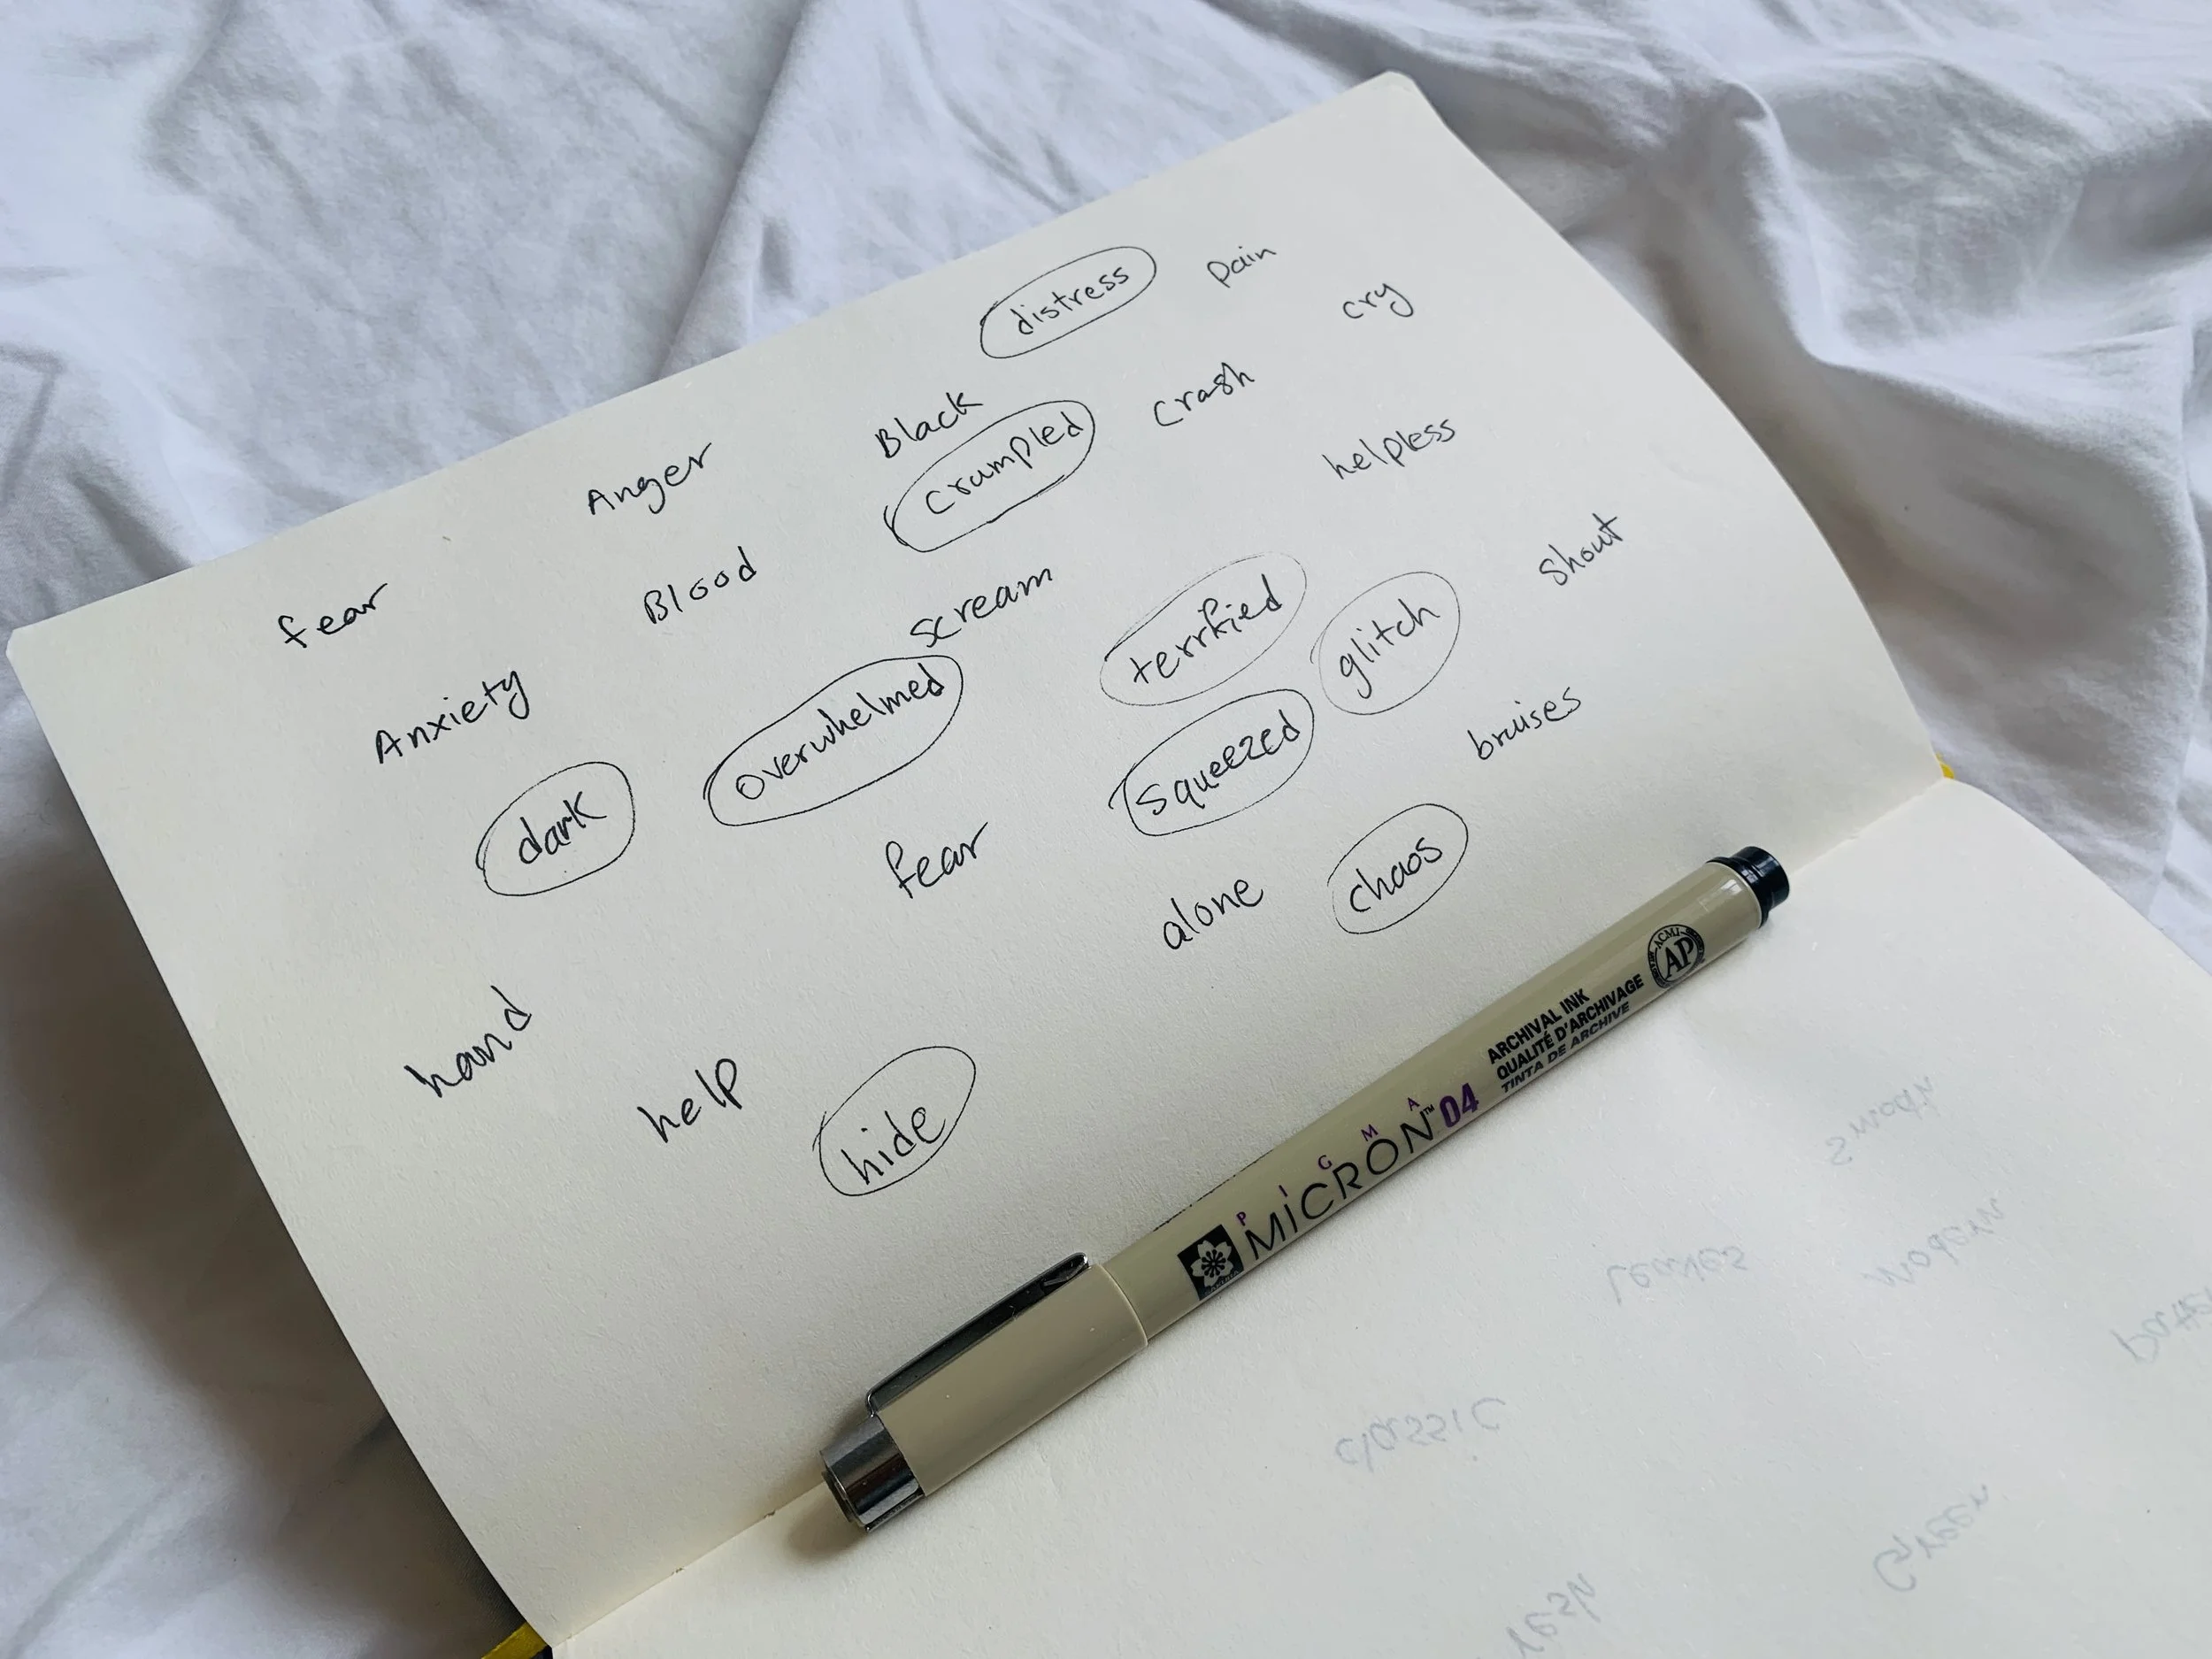 distress pain
cry
Black
crumpled crash
Anger
helpless
fear
Blood
scream
shout
terrified glitch
Anxiety
overwhelmed
squeezed bruises
dark
fear
alone chaos
hand
help
hide
PIGMA
MICRON™ 04
ARCHIVAL INK
QUALITÉ D'ARCHIVAGE
TINTA DE ARCHIVE
ACMI
AP
Leaves
modern
classic
Green